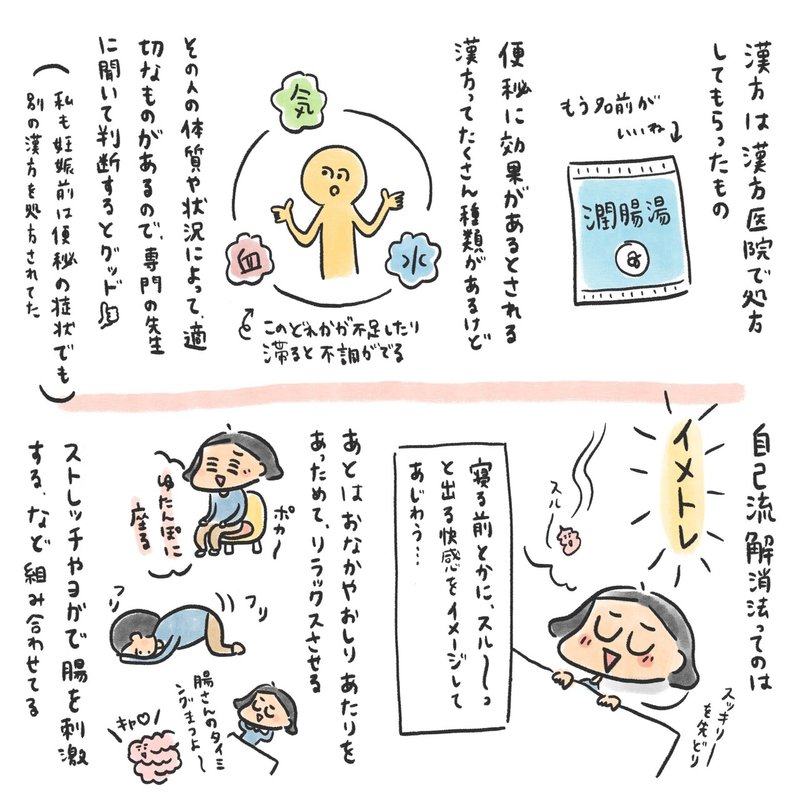 漢方は漢方医院で処方
してもらったもの
もう名前が
いいね
潤腸湯
便秘に効果があるとされる
漢方ってたくさん種類があるけど
気
血
水
このどれかが不足したり
滞ると不調がでる
その人の体質や状況によって、適
切なものがあるので、専門の先生
に聞いて判断するとグッド
(私も妊娠前は便秘の症状でも
別の漢方を処方されてた。)
自己流解消法ってのは
イメトレ
スル〜
スッキリー
を先どり
寝る前とかに、スル〜っ
と出る快感をイメージして
あじわう…
あとはおなかやおしりあたりを
あっためて、リラックスさせる
ポカ〜
ゆたんぽに
座る
ストレッチやヨガで腸を刺激
する、など組み合わせてる
フリ
フリ
腸さんのタイミ
ングまつよ〜
キャ♡